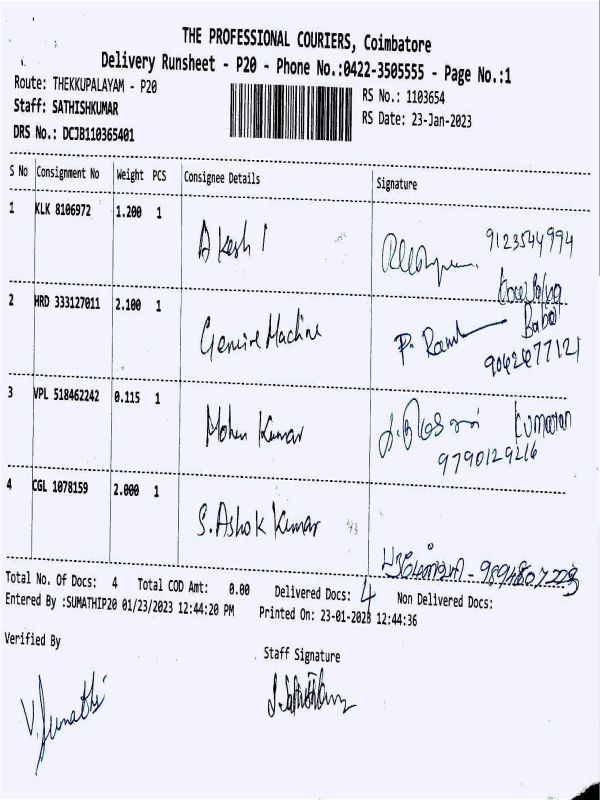 THE PROFESSIONAL COURIERS, Coimbatore
Delivery Runsheet - P20 - Phone No.:0422-3505555 - Page No.:1
Route: THEKKUPALAYAM - P20
Staff: SATHISHKUMAR
DRS No.: DCJB110365401
RS No.: 1103654
RS Date: 23-Jan-2023
S No Consignment No Weight PCS Consignee Details Signature
1 KLK 8106972 1.200 1 Akash 1 9123544994
2 HRD 333127011 2.100 1 Genuine Machine P. Ram Babu
9042677121
3 VPL 518462242 0.115 1 Mohan Kumar Kumaran
9790129216
4 CGL 1078159 2.000 1 S. Ashok Kumar
Total No. Of Docs: 4 Total COD Amt: 0.00 Delivered Docs: 4 Non Delivered Docs:
Entered By :SUMATHIP20 01/23/2023 12:44:20 PM Printed On: 23-01-2023 12:44:36
Verified By
Staff Signature
V. Sumathi